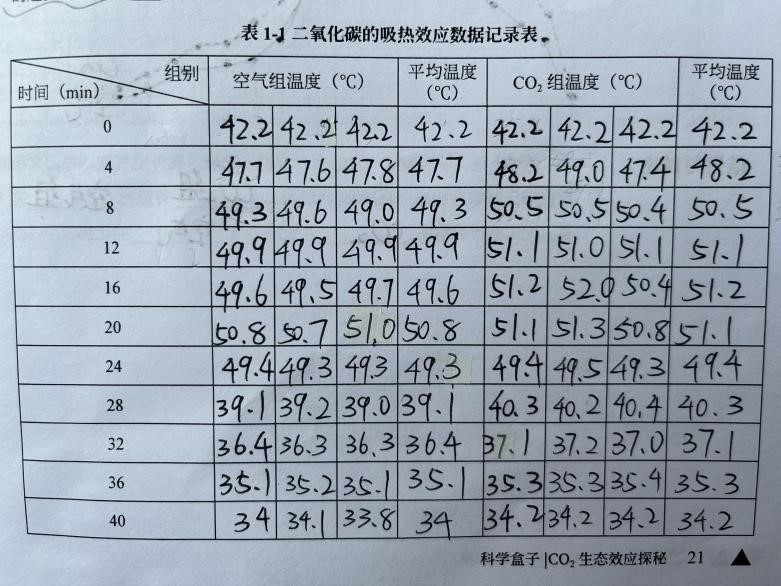 表 1-1 二氧化碳的吸热效应数据记录表
组别 时间（min） 空气组温度（℃） 平均温度（℃） CO₂ 组温度（℃） 平均温度（℃）
0 42.2 42.2 42.2 42.2 42.2 42.2 42.2 42.2
4 47.7 47.6 47.8 47.7 48.2 49.0 47.4 48.2
8 49.3 49.6 49.0 49.3 50.5 50.5 50.4 50.5
12 49.9 49.9 49.9 49.9 51.1 51.0 51.1 51.1
16 49.6 49.5 49.7 49.6 51.2 52.0 50.4 51.2
20 50.8 50.7 51.0 50.8 51.1 51.3 50.8 51.1
24 49.4 49.3 49.3 49.3 49.4 49.5 49.3 49.4
28 39.1 39.2 39.0 39.1 40.3 40.2 40.4 40.3
32 36.4 36.3 36.3 36.4 37.1 37.2 37.0 37.1
36 35.1 35.2 35.1 35.1 35.3 35.3 35.4 35.3
40 34 34.1 33.8 34 34.2 34.2 34.2 34.2
科学盒子 |CO₂ 生态效应探秘 21